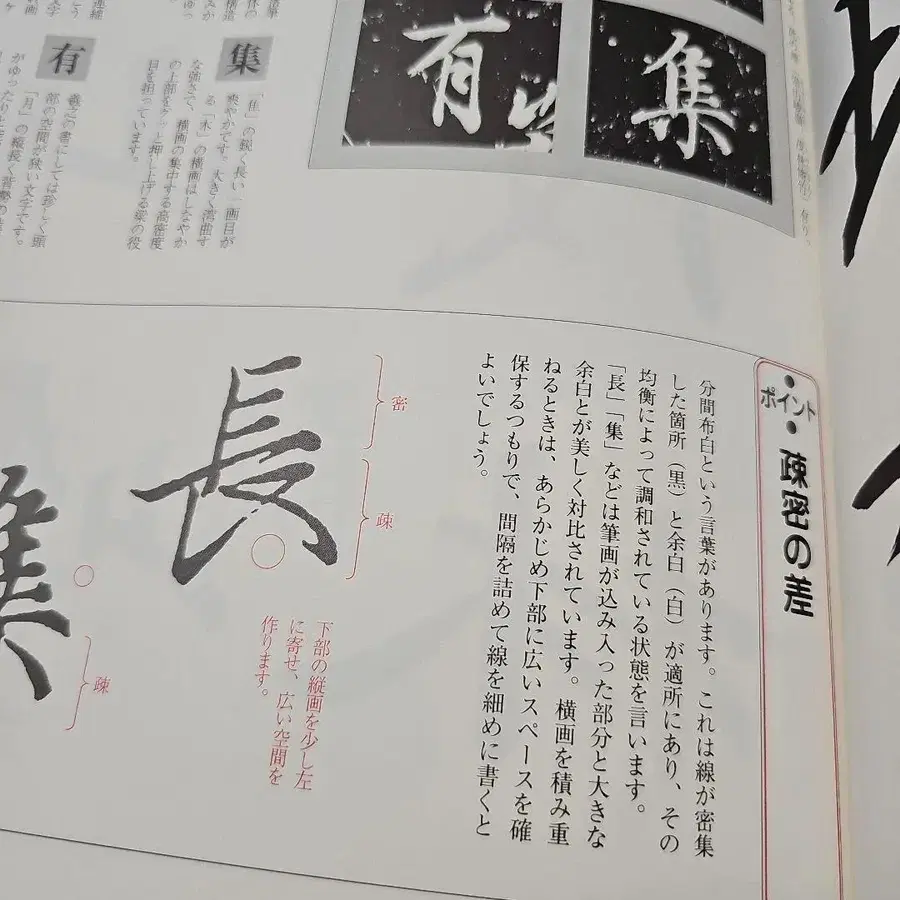 有
集
集
「隹」の鋭く長い一画目が
爽やかです。大きく湾曲す
る「木」の横画はしなやか
な強さで、横画の集中する高密度
の上部をグッと押し上げる梁の役
目を担っています。
有
羲之の書にしては珍しく頭
部の空間が狭い文字です。
ポイント
疎密の差
分間布白という言葉があります。これは線が密集
した箇所（黒）と余白（白）が適所にあり、その
均衡によって調和されている状態を言います。
「長」「集」などは筆画が込み入った部分と大きな
余白とが美しく対比されています。横画を積み重
ねるときは、あらかじめ下部に広いスペースを確
保するつもりで、間隔を詰めて線を細めに書くと
よいでしょう。
密
疎
長
下部の縦画を少し左
に寄せ、広い空間を
作ります。
疎
集